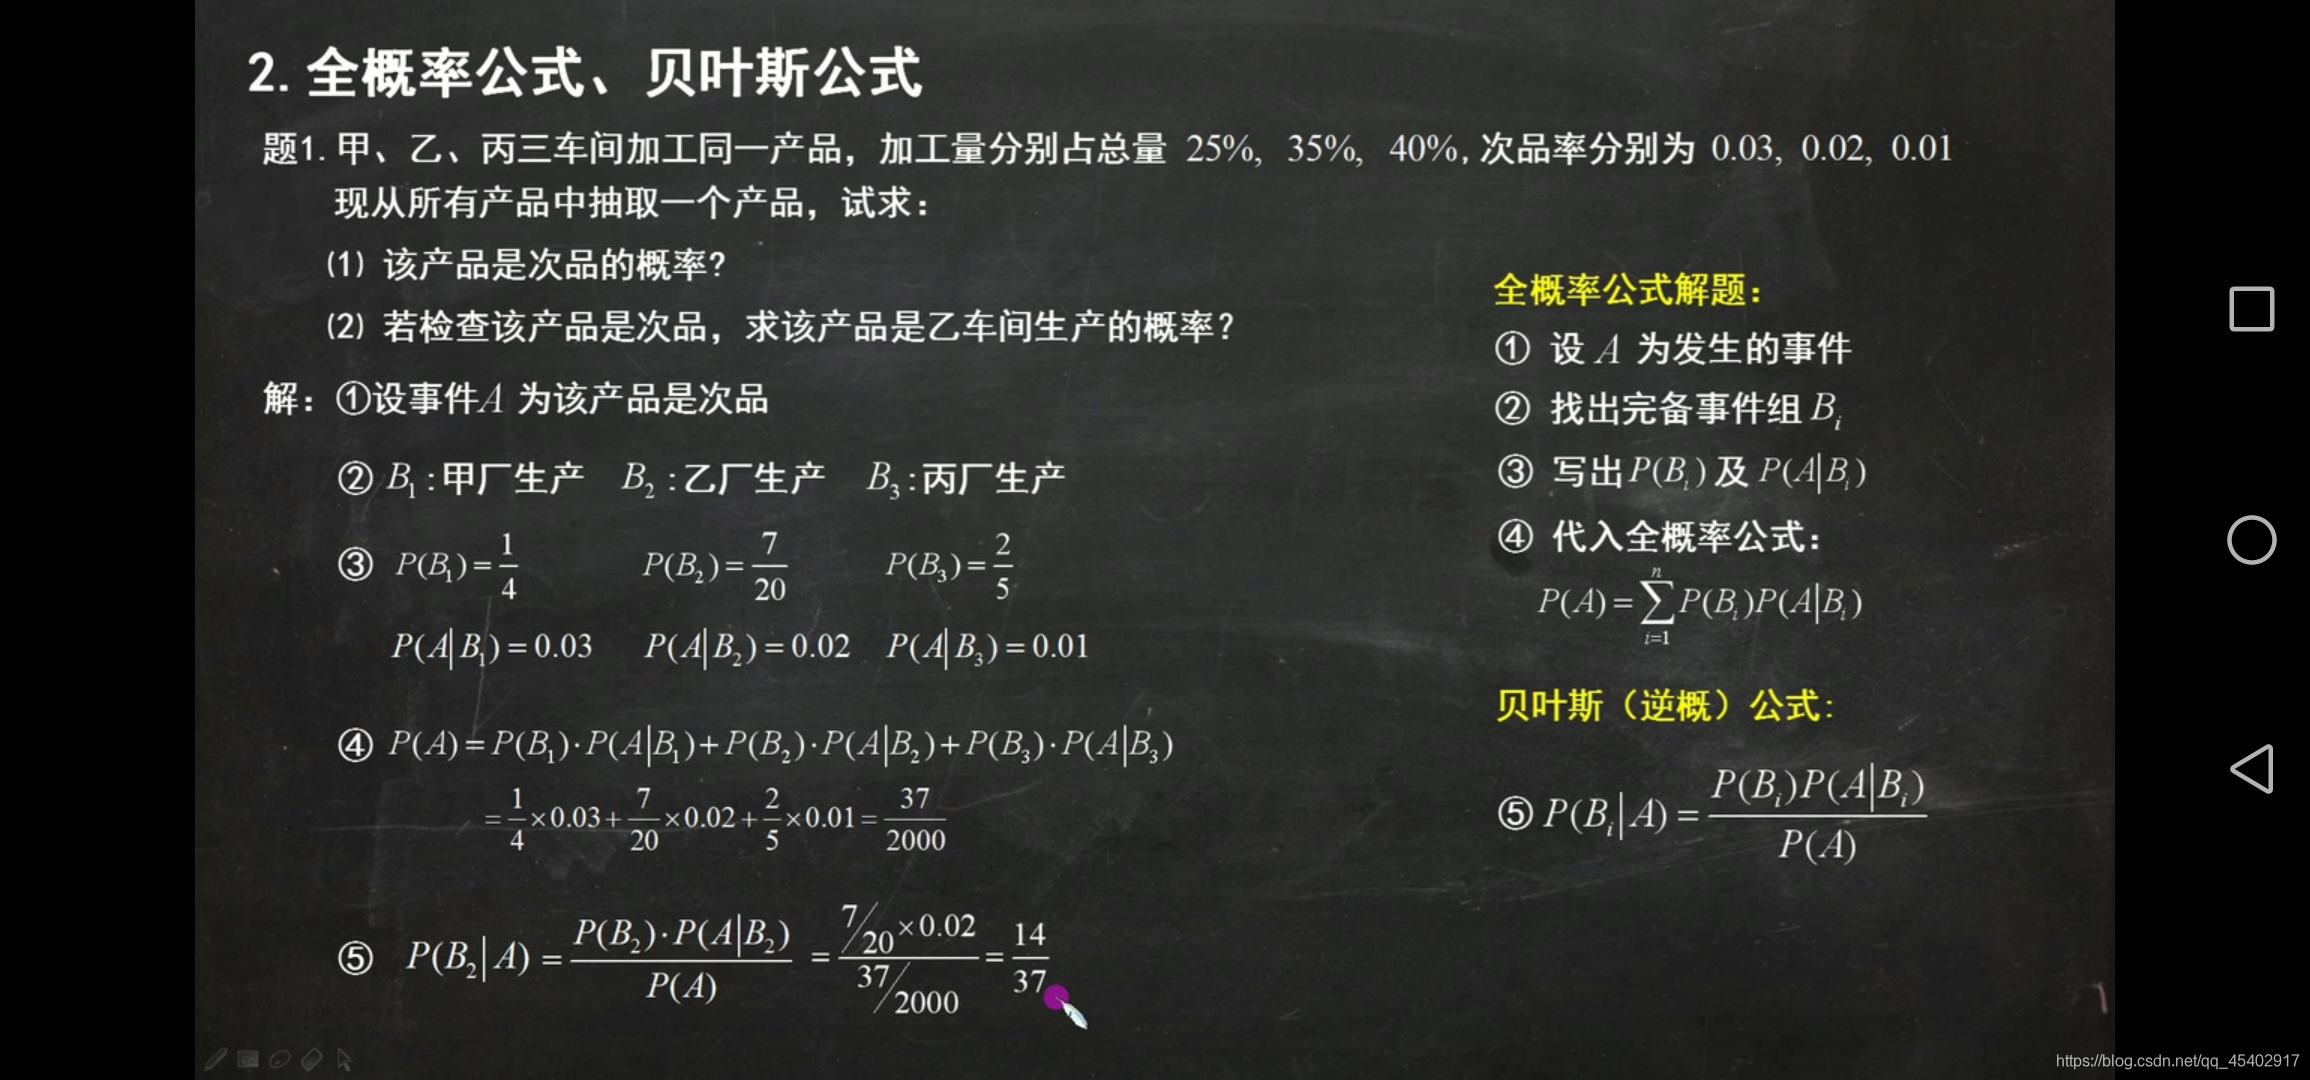 2. 全概率公式、贝叶斯公式
题1. 甲、乙、丙三车间加工同一产品，加工量分别占总量 25%, 35%, 40%, 次品率分别为 0.03, 0.02, 0.01
现从所有产品中抽取一个产品，试求：
(1) 该产品是次品的概率?
(2) 若检查该产品是次品，求该产品是乙车间生产的概率?
解：①设事件A 为该产品是次品
② B₁ :甲厂生产 B₂ :乙厂生产 B₃ :丙厂生产
③ P(B₁)=1/4 P(B₂)=7/20 P(B₃)=2/5
P(A|B₁)=0.03 P(A|B₂)=0.02 P(A|B₃)=0.01
④ P(A)=P(B₁)·P(A|B₁)+P(B₂)·P(A|B₂)+P(B₃)·P(A|B₃)
=1/4×0.03+7/20×0.02+2/5×0.01=37/2000
⑤ P(B₂|A)=P(B₂)·P(A|B₂)/P(A)=7/20×0.02/37/2000=14/37
全概率公式解题：
① 设 A 为发生的事件
② 找出完备事件组 Bᵢ
③ 写出P(Bᵢ)及 P(A|Bᵢ)
④ 代入全概率公式：
P(A)=∑ⁿᵢ₌₁P(Bᵢ)P(A|Bᵢ)
贝叶斯（逆概）公式:
⑤ P(Bᵢ|A)=P(Bᵢ)P(A|Bᵢ)/P(A)
https://blog.csdn.net/qq_45402917